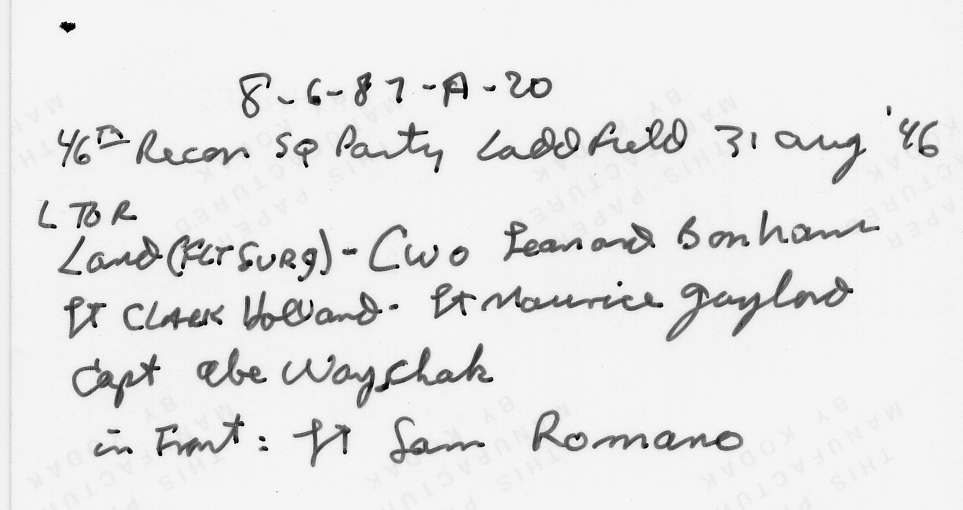 8-6-87-A-20
46th Recon Sq Party Ladd Field 31 Aug '46
L TO R
Land (FLT SURG) - CWO Leanard Bonham
Lt CLARK Holland - Lt Maurice Gaylord
Capt Abe Wayschak
in Front: Lt Sam Romano
THIS PAPER
MANUFACTURED
BY KODAK